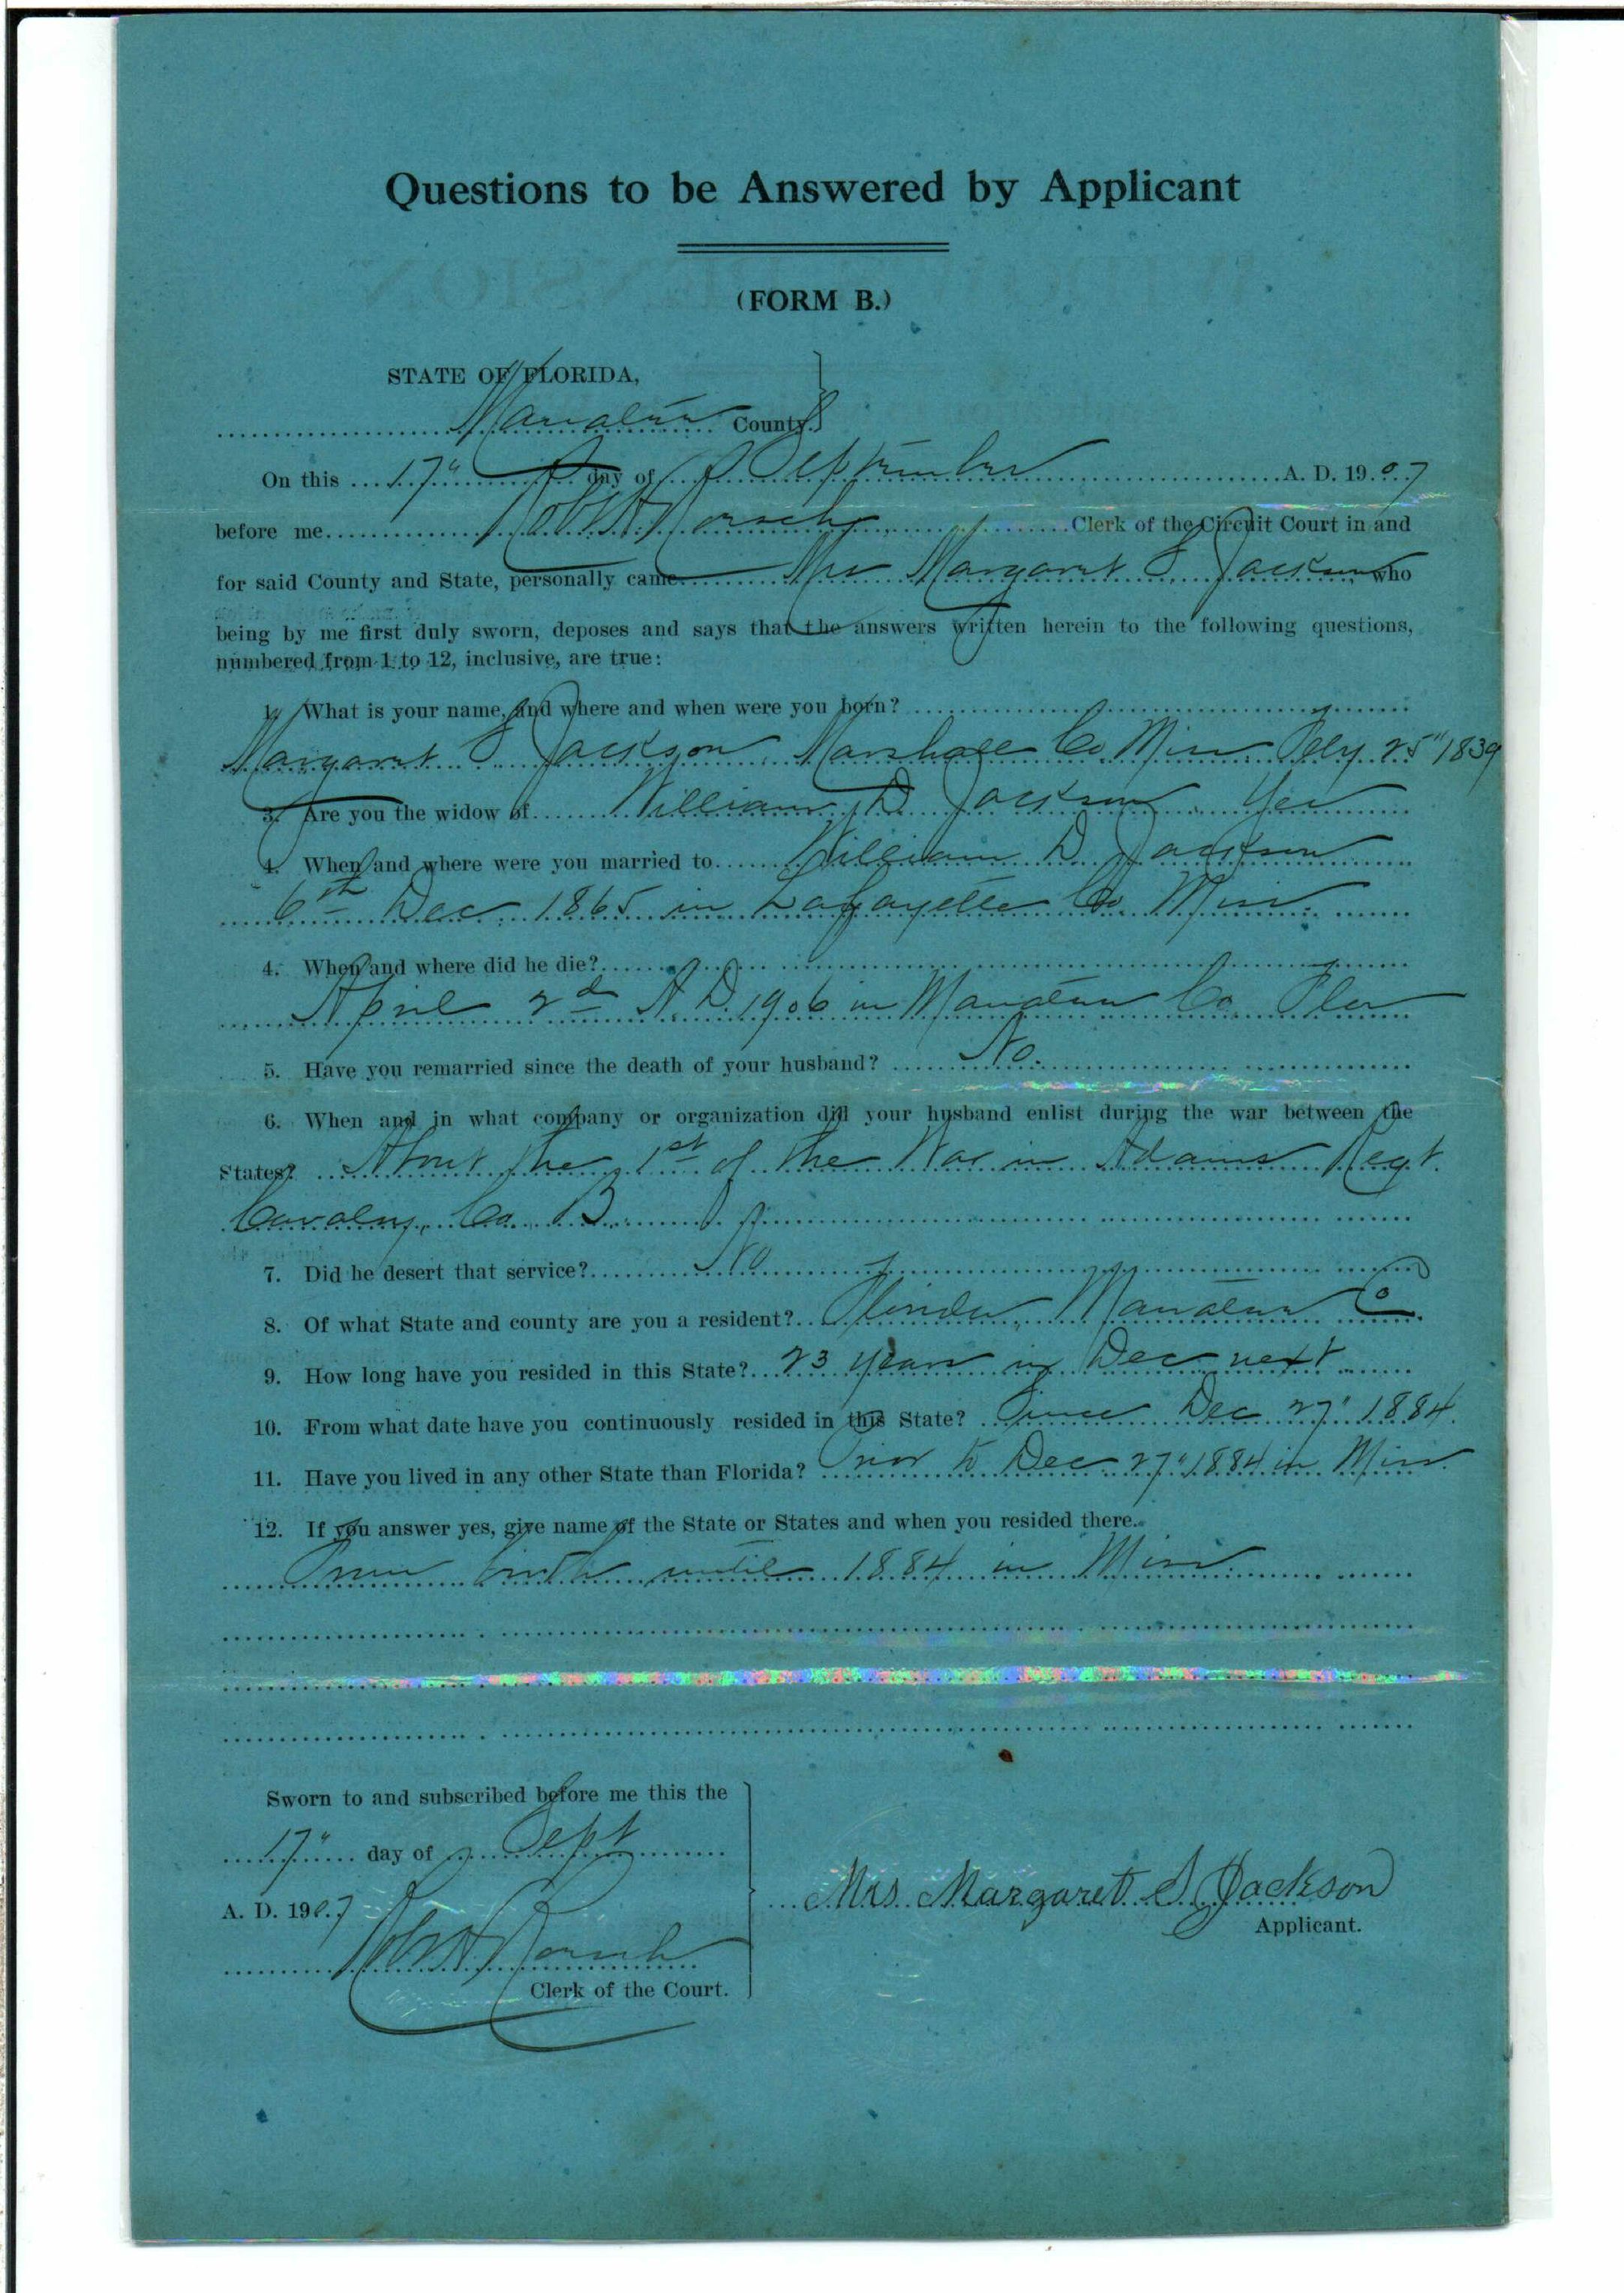 Questions to be Answered by Applicant
(FORM B.)
STATE OF FLORIDA,
Manatee County.
On this 17" day of September A. D. 1907
before me Robt H Roesch Clerk of the Circuit Court in and
for said County and State, personally came Mrs Margaret S Jackson who
being by me first duly sworn, deposes and says that the answers written herein to the following questions,
numbered from 1 to 12, inclusive, are true:
1. What is your name, and where and when were you born?
Margaret S Jackson Marshall Co Miss Feby 25" 1839
3. Are you the widow of William D. Jackson Yes
4. When and where were you married to William D. Jackson
6th Dec 1865 in Lafayette Co. Miss.
4. When and where did he die?
April 2d A. D. 1906 in Manatee Co. Fla
5. Have you remarried since the death of your husband? No.
6. When and in what company or organization did your husband enlist during the war between the
States? About the 1st of the War in Adams Regt.
Cavalry, Co. B
7. Did he desert that service? No
8. Of what State and county are you a resident? Florida, Manatee Co.
9. How long have you resided in this State? 23 years in Dec next
10. From what date have you continuously resided in this State? Since Dec 27" 1884.
11. Have you lived in any other State than Florida? Prior to Dec 27" 1884 in Miss.
12. If you answer yes, give name of the State or States and when you resided there.
From birth until 1884 in Miss
Sworn to and subscribed before me this the
17" day of Sept
A. D. 1907
Robt H. Roesch
Clerk of the Court.
Mrs. Margaret S. Jackson
Applicant.